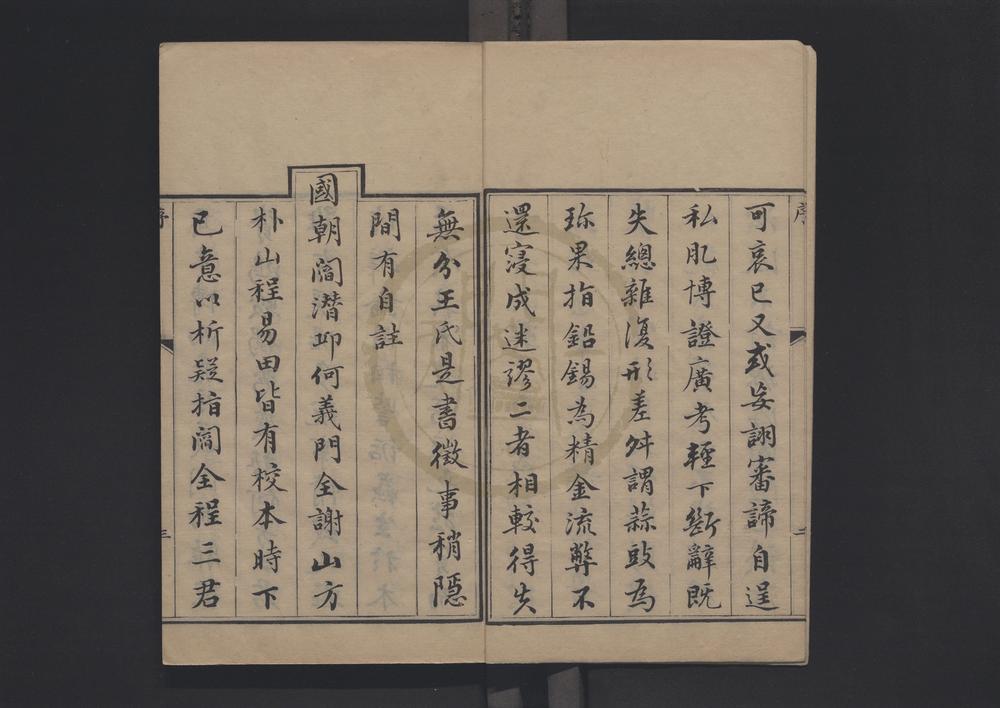 序
可哀已又或妄詡審諦自逞
私肊博證廣考輕下斷辭既
失總雜復形差舛謂蒜豉為
珎果指鉛錫為精金流弊不
還寖成迷謬二者相較得失
二
無分王氏是書徵事稍隱
間有自註
國朝閻潛邱何義門全謝山方
朴山程易田皆有校本時下
已意以析疑指閻全程三君
序
三